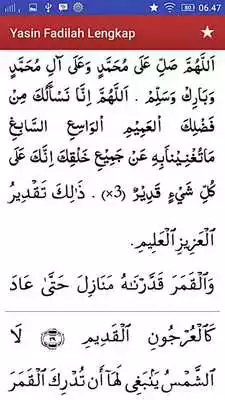 06.47
Yasin Fadilah Lengkap
اَللَّهُمَّ صَلِّ عَلَى مُحَمَّدٍ وَعَلَى آلِ مُحَمَّدٍ
وَبَارِكْ وَسَلِّمْ . اَللَّهُمَّ اِنَّا نَسْأَلُكَ مِنْ
فَضْلِكَ الْعَمِيْمِ الْوَاسِعِ السَّابِغِ
مَاتُغْنِيْنَابِهِ عَنْ جَمِيْعِ خَلْقِكَ اِنَّكَ عَلَى
كُلِّ شَيْءٍ قَدِيْرٌ (×3) . ذَٰلِكَ تَقْدِيْرُ
الْعَزِيْزِ الْعَلِيْمِ.
وَالْقَمَرَ قَدَّرْنَـٰهُ مَنَازِلَ حَتَّىٰ عَادَ
كَالْعُرْجُونِ الْقَدِيمِ ﴿٣٩﴾ لَا
الشَّمْسُ يَنْۢبَغِي لَهَآ أَن تُدْرِكَ الْقَمَرَ